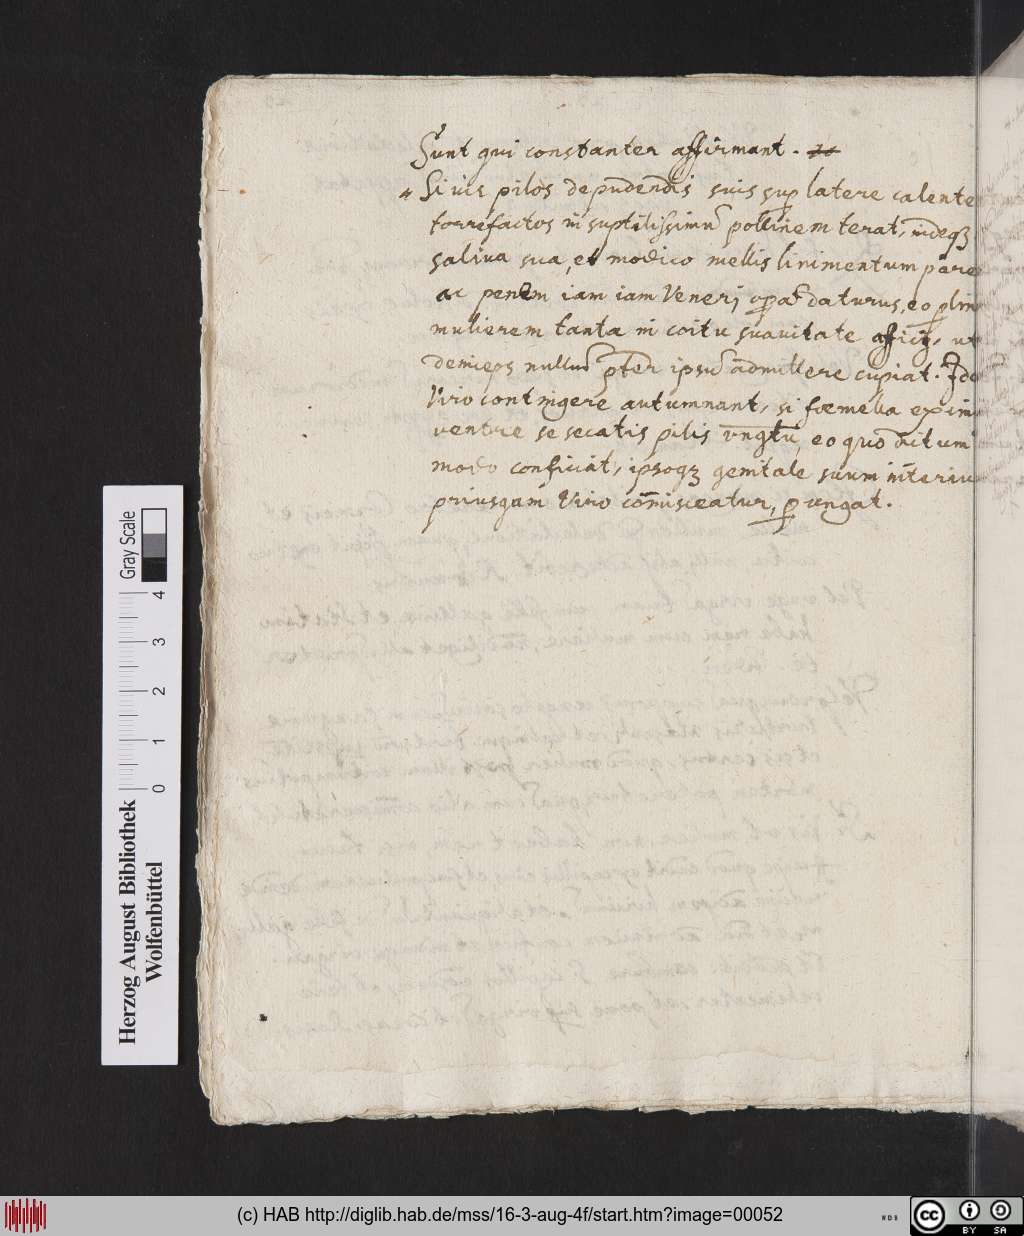 Sunt qui constanter affirmant.
Si uis pilos depudendis suis sup latere calente
torrefactos in suptilissimũ pollinem terat, indeqꝫ
saliua sua, et modico mellis linimentum pare
ac penem iam iam Veneri opã daturus, eo plin
mulierem tanta in coitu suauitate afficit, ut
deinceps nullũ pter ipsũ admittere cupiat. Ide
Viro contingere autumnant, si fœmella exim
ventre se secatis pilis vngtũ, eo quo dictum
modo conficiat, ipsoqꝫ genitale suum interiu
priusqam Viro com̃isceatur, pungat.
Gray Scale
4
3
2
1
0
Herzog August Bibliothek
Wolfenbüttel
(c) HAB http://diglib.hab.de/mss/16-3-aug-4f/start.htm?image=00052
WDB
cc
BY SA